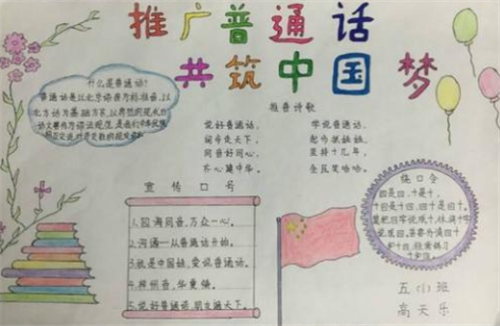 推广普通话
共筑中国梦
什么是普通话?
普通话是以北京语音为标准音,以
北方话为基础方言,以典范的现代白
话文著作为语法规范
推普诗歌
说好普通话,
同音好同心,
学说普通话,
坚持十几年,
宣传口号
1.四海同音,万众一心。
2.沟通——从普通话开始。
3.我是中国娃,爱说普通话。
4.神州音,华夏情。
5.说好普通话,朋友遍天下。
绕口令
四是四,十是十,
十四是十四,四十是四十,
五(1)班
高天乐